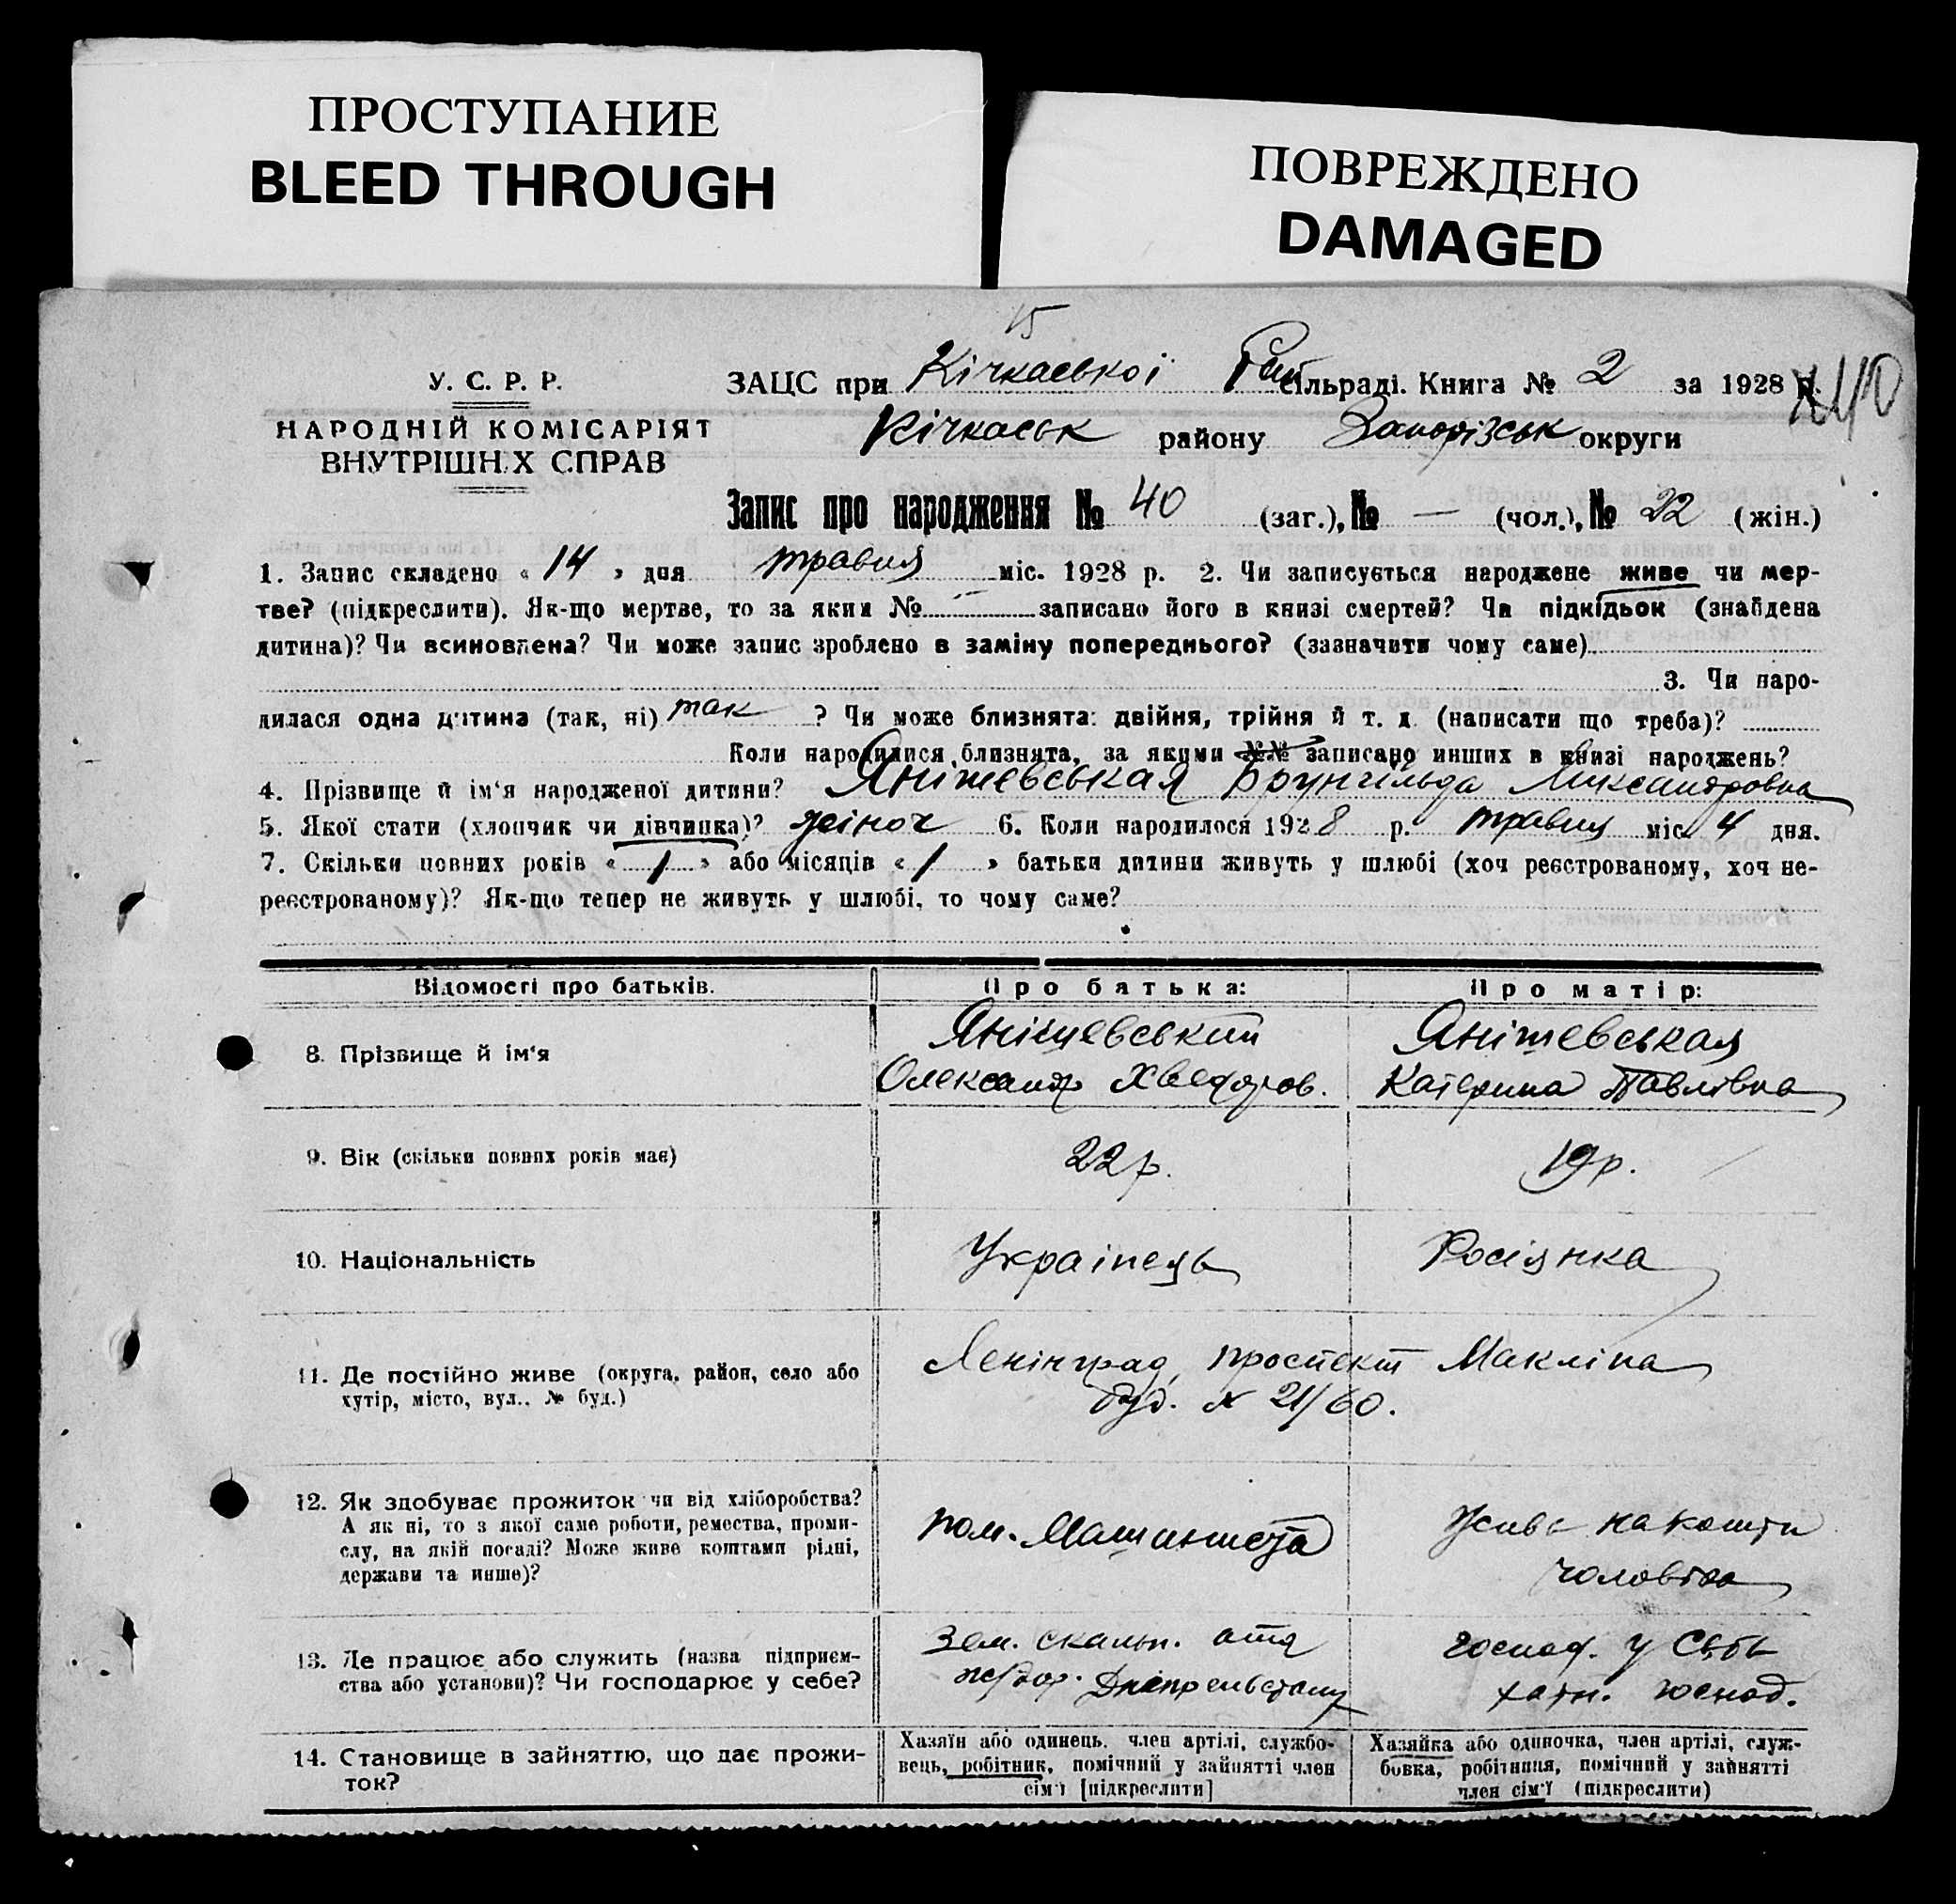 ПРОСТУПАНИЕ
BLEED THROUGH
ПОВРЕЖДЕНО
DAMAGED
15
У. С. Р. Р.
НАРОДНІЙ КОМІСАРІЯТ
ВНУТРІШНІХ СПРАВ
ЗАЦС при Кічкаської Рай сільраді. Книга № 2 за 1928 р.
№40
Кічкаськ району Запорізськ округи
Запис про народження № 40 (заг.), № — (чол.), № 22 (жін.)
1. Запис складено « 14 » дня травня міс. 1928 р. 2. Чи записується народжене живе чи мер-
тве? (підкреслити). Як-що мертве, то за яким № записано його в книзі смертей? Чи підкідьок (знайдена
дитина)? Чи всиновлена? Чи може запис зроблено в заміну попереднього? (зазначити чому саме)
3. Чи наро-
дилася одна дитина (так, ні) так ? Чи може близнята: двійня, трійня й т. д. (написати що треба)?
Коли народилися близнята, за якими №№ записано инших в книзі народжень?
4. Прізвище й ім'я народженої дитини? Янішевськая Брунгільда Олександровна
5. Якої стати (хлопчик чи дівчинка)? жіноч 6. Коли народилося 1928 р. травня міс. 4 дня.
7. Скільки повних років « 1 » або місяців « / » батьки дитини живуть у шлюбі (хоч реєстрованому, хоч не-
реєстрованому)? Як-що тепер не живуть у шлюбі, то чому саме?
Відомості про батьків.
Про батька:
Про матір:
8. Прізвище й ім'я
Янішевський
Олександр Хведоров.
Янішевськая
Катерина Павлівна
9. Вік (скільки повних років має)
22 р.
19 р.
10. Національність
Українець
Росіянка
11. Де постійно живе (округа, район, село або
хутір, місто, вул., № буд.)
Ленінград, проспект Макліна
буд. № 21/60.
12. Як здобуває прожиток чи від хліборобства?
А як ні, то з якої саме роботи, ремества, проми-
слу, на якій посаді? Може живе коштами рідні,
держави та инше)?
пом. Машиніста
Живе на кошти
чоловіка
13. Де працює або служить (назва підприєм-
ства або установи)? Чи господарює у себе?
Зем. скальн.
Дніпрельстану
господ. у Себе
хатн. господ.
14. Становище в зайняттю, що дає прожи-
ток?
Хазяїн або одинець, член артілі, службо-
вець, робітник, помічний у зайнятті член
сім'ї [підкреслити]
Хазяйка або одиночка, член артілі, служ-
бовка, робітниця, помічний у зайнятті
член сім'ї (підкреслити)